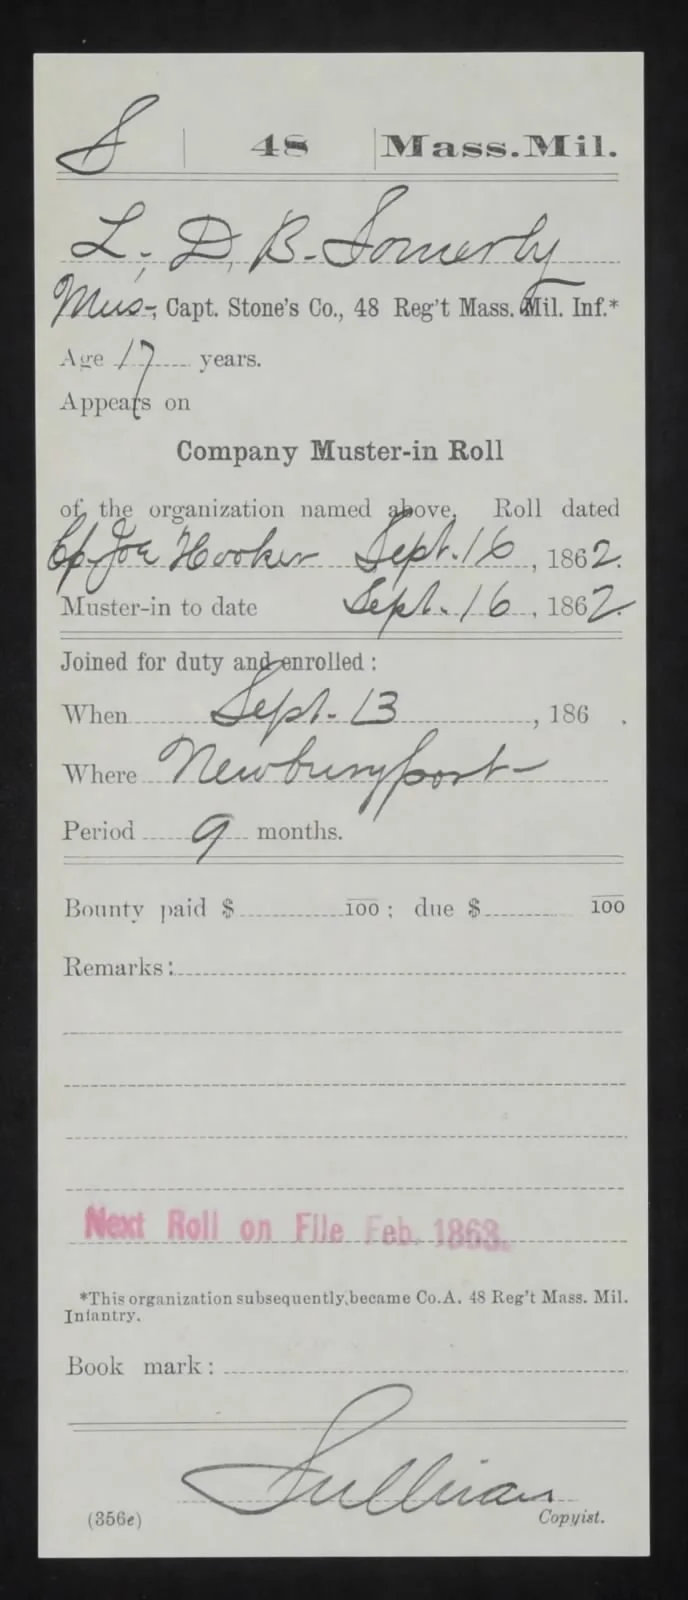 S | 48 | Mass. Mil.
L. D. B. Somerby
Mus-, Capt. Stone's Co., 48 Reg't Mass. Mil. Inf.*
Age 17 years.
Appears on
Company Muster-in Roll
of the organization named above. Roll dated
Cp. Joe Hooker Sept. 16, 1862.
Muster-in to date Sept. 16, 1862.
Joined for duty and enrolled:
When Sept. 13, 186 .
Where Newburyport
Period 9 months.
Bounty paid $ 100; due $ 100
Remarks:
Next Roll on File Feb. 1863.
*This organization subsequently became Co. A. 48 Reg't Mass. Mil.
Infantry.
Book mark:
Sullivan
(356e) Copyist.